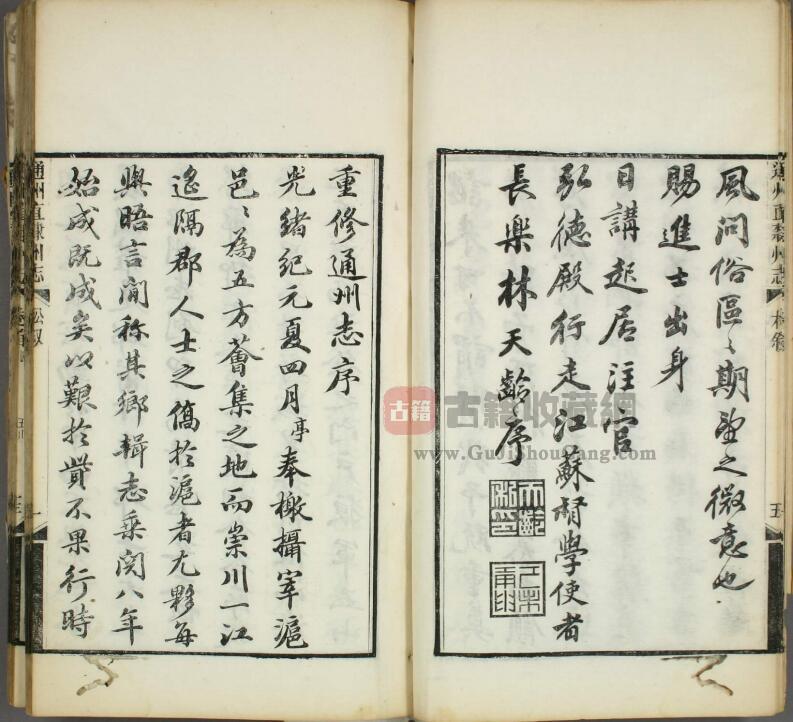 風問俗區〻期望之微意也
賜進士出身
日講起居注官
弘德殿行走江蘇督學使者
長樂林天齡序
重修通州志序
光緒紀元夏四月亭奉檄攝宰滬
邑〻為五方薈集之地而崇川一江
遙隔郡人士之僑於滬者尤夥每
與晤言閒稱其鄉輯志乘閱八年
始成既成矣以艱於貲不果行時
通州直隸州志
通州直隸州志
古籍
古籍收藏網
www.GujiShoucang.com